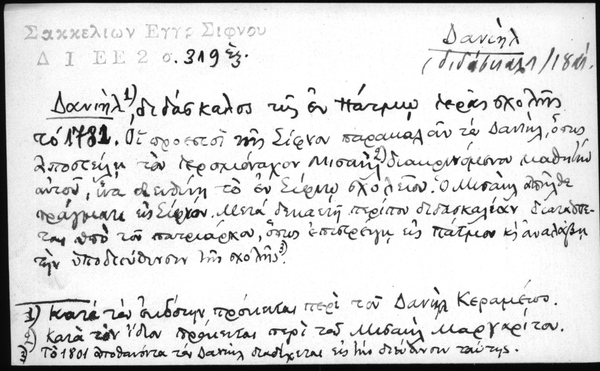 Σακκελίων Εγγρ Σίφνου
Δ Ι Ε Ε 2 σ. 319 ἑξ.
Δανιὴλ
(διδάσκαλος) 18
Δανιὴλ 1), διδάσκαλος τῆς ἐν Πάτμῳ ἱερᾶς σχολῆς
τὸ 1782. Οἱ προεστοὶ τῆς Σίφνου παρακαλοῦν τὸν Δανιὴλ, ὅπως
ἀποστείλῃ τὸν ἱερομόναχον Μισαὴλ 2) διακρινόμενον μαθητὴν
αὐτοῦ, ἵνα διευθύνῃ τὸ ἐν Σίφνῳ σχολεῖον. Ὁ Μισαὴλ ἀπῆλθε
πράγματι εἰς Σίφνον. Μετὰ δεκαετῆ περίπου διδασκαλίαν διατάσσε-
ται ὑπὸ τοῦ πατριάρχου, ὅπως ἐπιστρέψῃ εἰς Πάτμον κ' ἀναλάβῃ
τὴν ὑποδιεύθυνσιν τῆς σχολῆς 3).
1) Κατὰ τὸν ἐκδότην πρόκειται περὶ τοῦ Δανιὴλ Κεραμέως.
2) Κατὰ τὸν ἴδιον πρόκειται περὶ τοῦ Μισαὴλ Μαργαρίτου.
3) Τὸ 1801 ἀποθανόντα τὸν Δανιὴλ διαδέχεται εἰς τὴν διεύθυνσιν ταύτης.